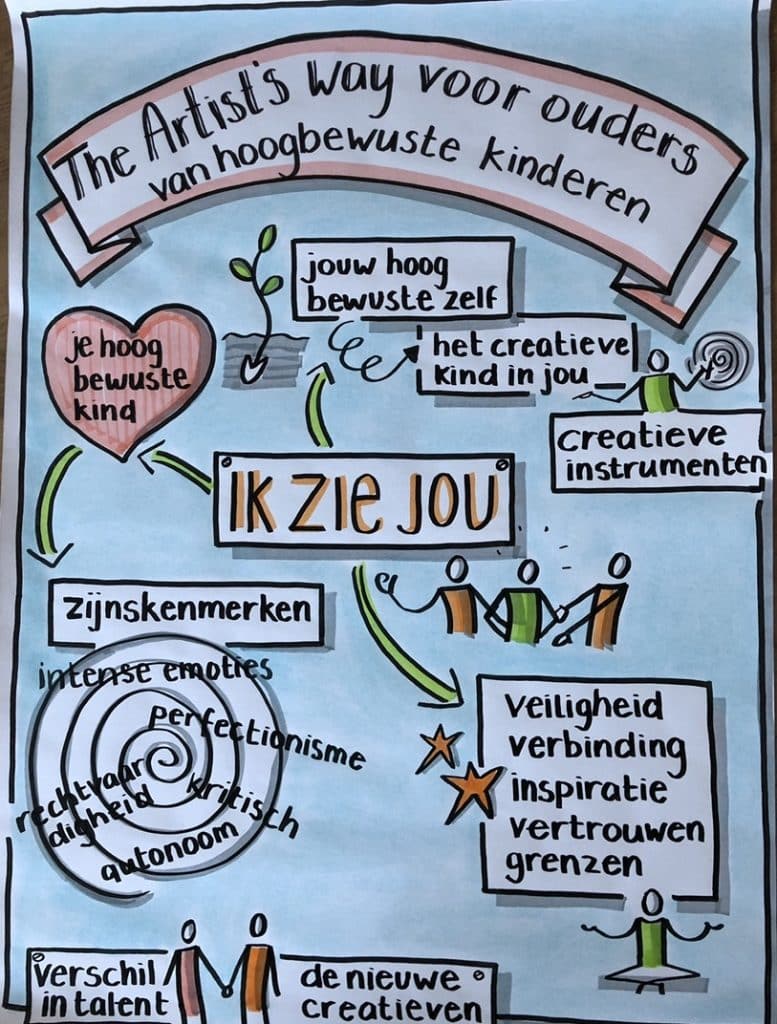 The Artist's way voor ouders
van hoogbewuste kinderen
jouw hoog
bewuste zelf
het creatieve
kind in jou
je hoog
bewuste
kind
creatieve
instrumenten
IK ZIE JOU
zijnskenmerken
intense emoties
perfectionisme
rechtvaar
digheid
kritisch
autonoom
veiligheid
verbinding
inspiratie
vertrouwen
grenzen
verschil
in talent
de nieuwe
creatieven